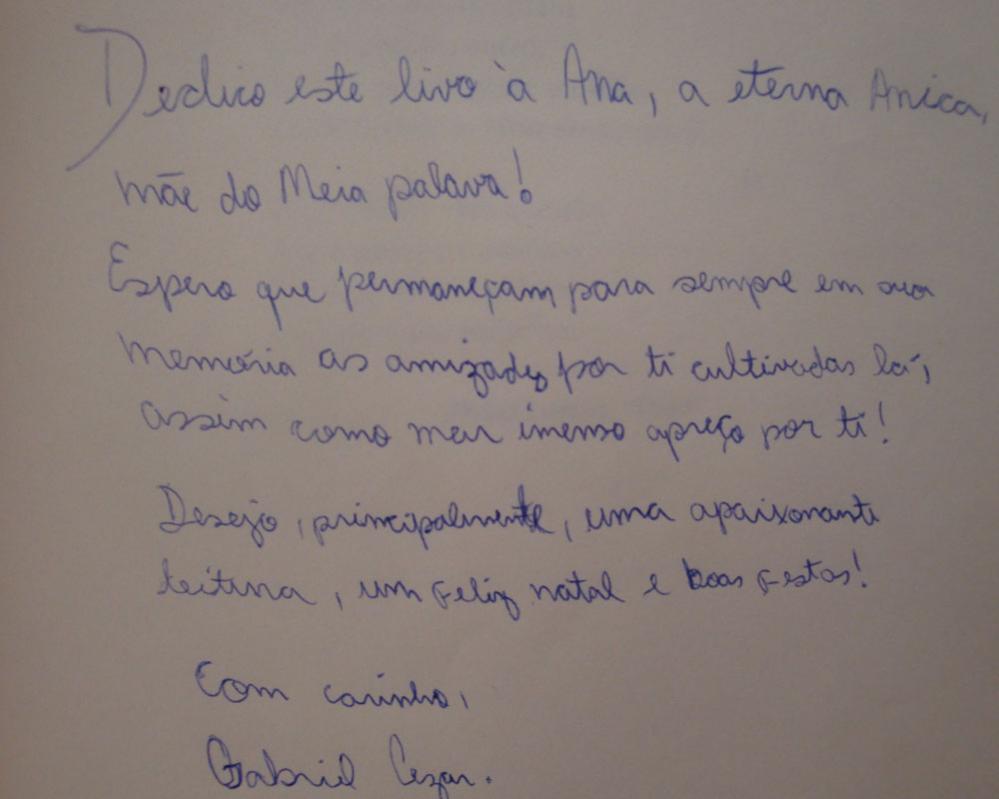 Dedico este livro à Ana, a eterna Anica,
mãe do Meia palavra!
Espero que permaneçam para sempre em sua
memória as amizades por ti cultivadas lá,
assim como meu imenso apreço por ti!
Desejo, principalmente, uma apaixonante
leitura, um feliz natal e boas festas!
Com carinho,
Gabriel Cezar.